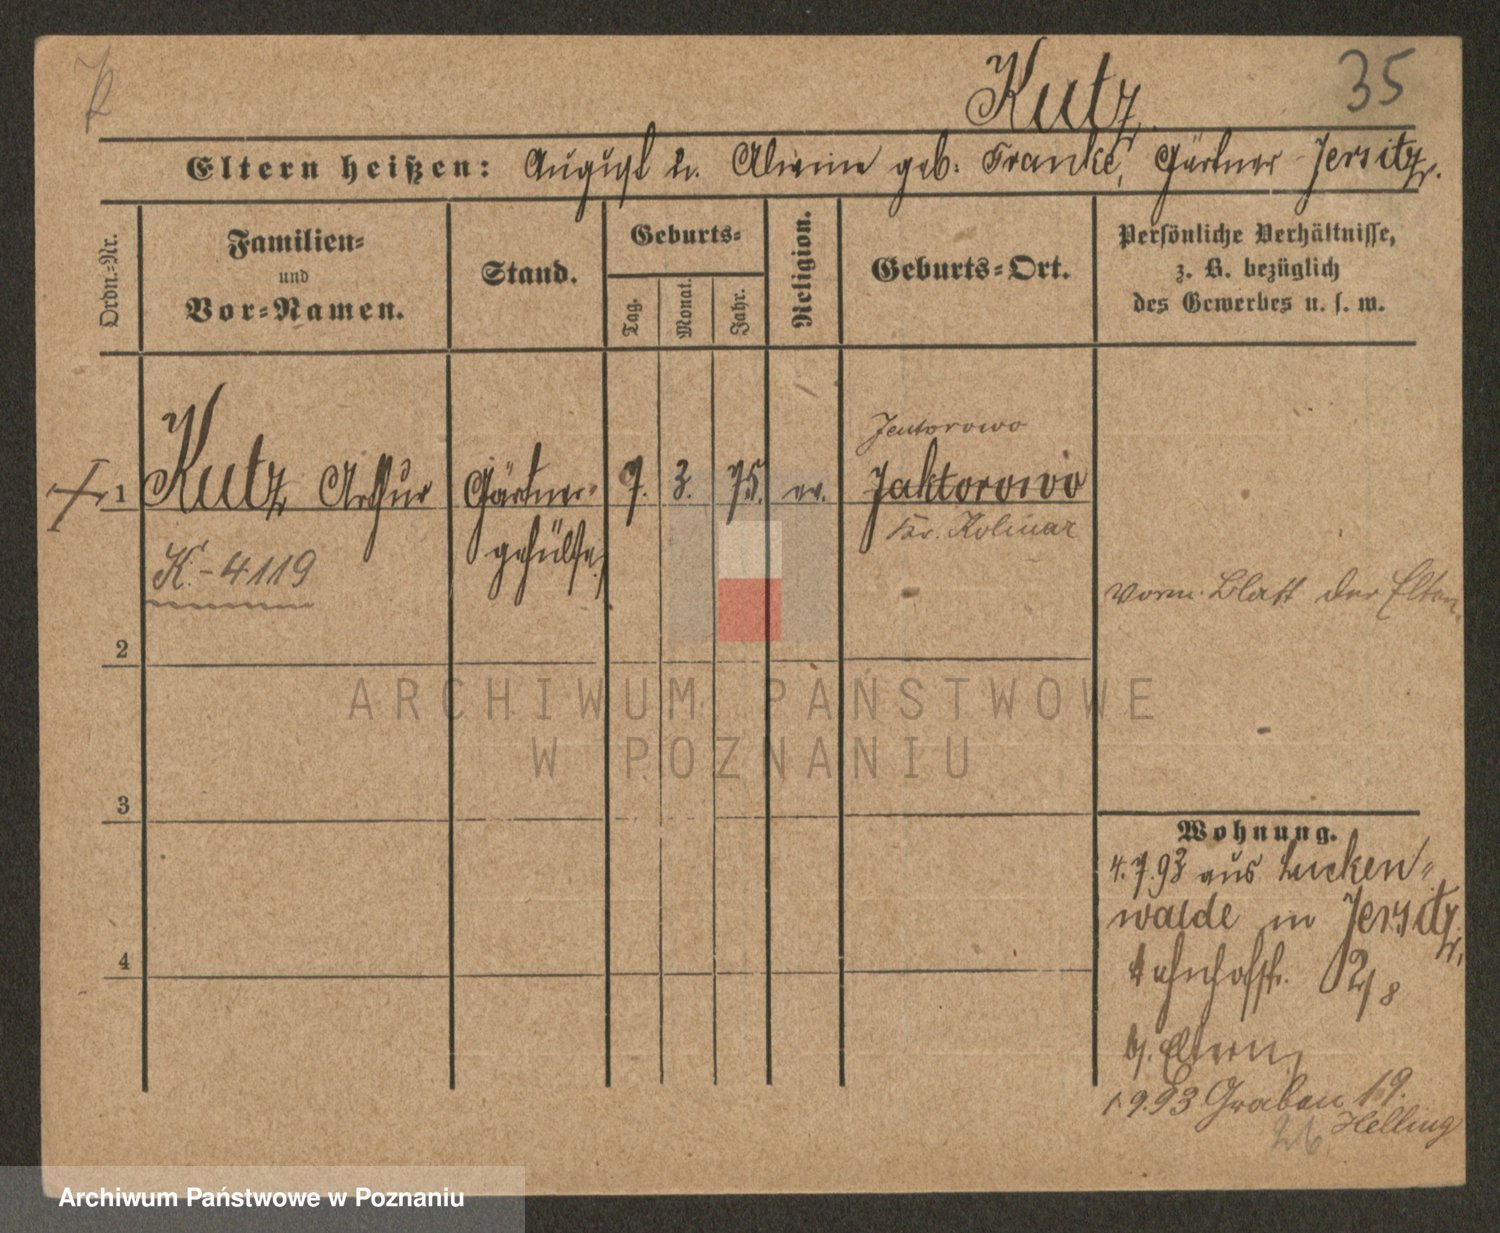 Kutz.
35
Eltern heißen: August u. Alwine geb. Franke, Gärtner Jersitz.
Ordn.=Nr.
Familien=
und
Vor=Namen.
Stand.
Geburts=
Tag.
Monat.
Jahr.
Religion.
Geburts=Ort.
Persönliche Verhältnisse,
z. B. bezüglich
des Gewerbes u. s. w.
Jentorowo
1 Kutz Arthur Gärtner= 7. 3. 75. ev. Jaktorowo
gehülfe Kr. Kolmar
K.-4119
vorm. Blatt der Eltern
2
3
4
Wohnung.
4.7.93 aus Lucken=
walde in Jersitz,
Bahnhofstr. 2/8
b/. Eltern
1.9.93 Graben 19.
Helling
26
ARCHIWUM PAŃSTWOWE
W POZNANIU
Archiwum Państwowe w Poznaniu